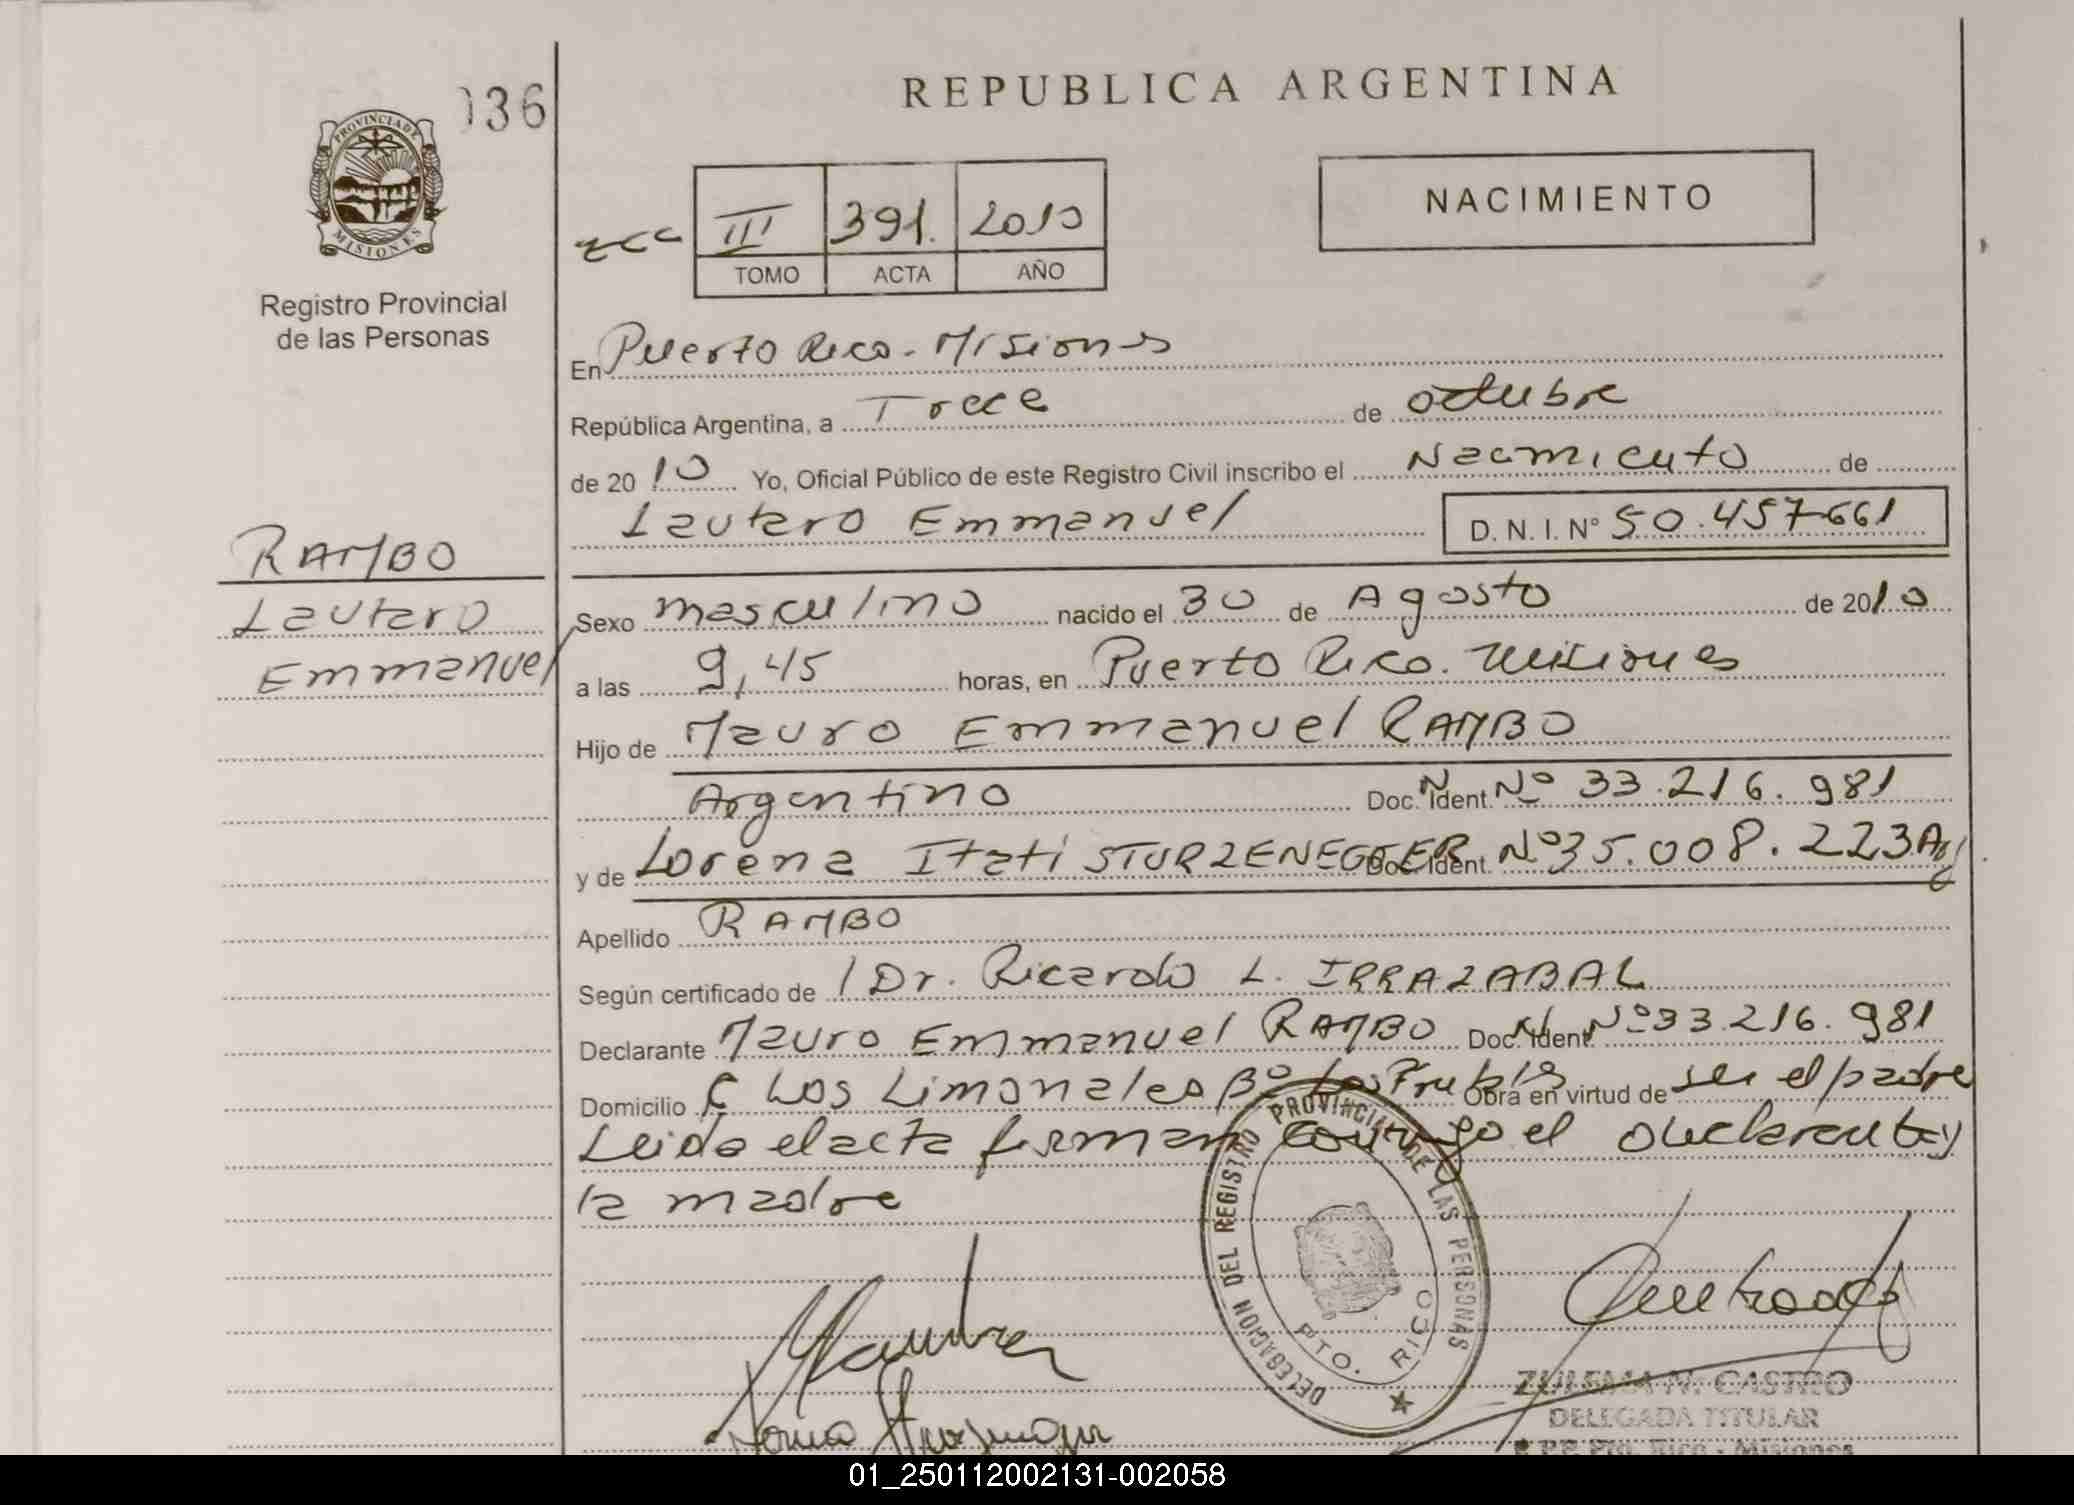 136
REPUBLICA ARGENTINA
PROVINCIA DE
MISIONES
Registro Provincial
de las Personas
III 391. 2010
TOMO ACTA AÑO
NACIMIENTO
En Puerto Rico - Misiones
República Argentina, a Trece de octubre
de 2010 Yo, Oficial Público de este Registro Civil inscribo el Nacimiento de
Lautaro Emmanuel D. N. I. Nº 50.457.661
RAMBO
Lautaro
Emmanuel
Sexo masculino nacido el 30 de Agosto de 2010
a las 9,45 horas, en Puerto Rico. Misiones
Hijo de Mauro Emmanuel RAMBO
Argentino Doc. Ident. Nº 33.216.981
y de Lorena Itati STURZENEGGER Doc. Ident. Nº 35.008.223 Arg
Apellido RAMBO
Según certificado de Dr. Ricardo L. IRRAZABAL
Declarante Mauro Emmanuel RAMBO Doc. Ident. Nº 33.216.981
Domicilio C Los Limonales Bº Los Frutales Obra en virtud de ser el padre
Leida el acta firman conmigo el declarante y
la madre
DELEGACION DEL REGISTRO PROVINCIAL DE LAS PERSONAS
PTO. RICO
ZULEMA N. CASTRO
DELEGADA TITULAR
R.P.P. Pto. Rico - Misiones
01_250112002131-002058